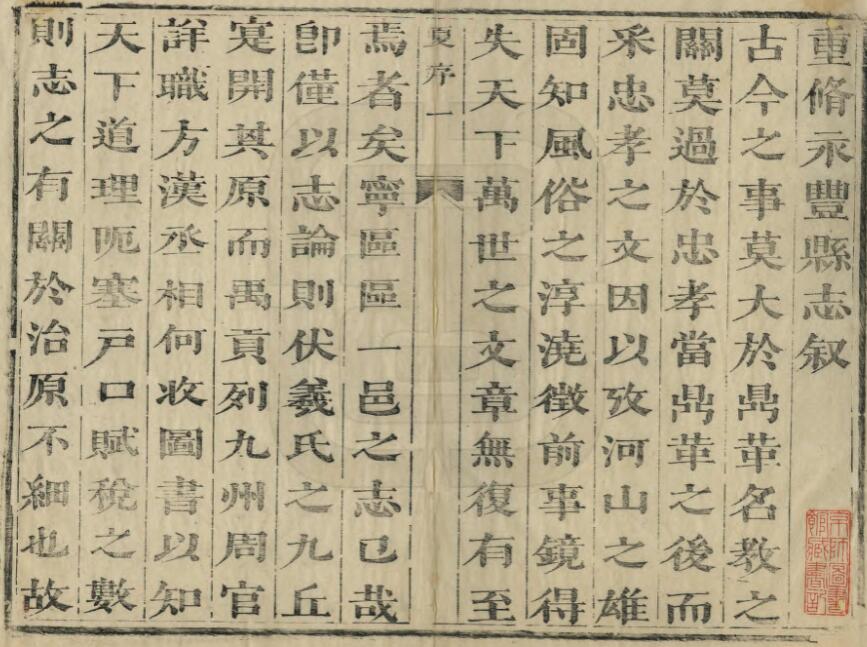 重脩永豐縣志叙
古今之事莫大於鼎革名教之
關莫過於忠孝當鼎革之後而
采忠孝之文因以攷河山之雄
固知風俗之淳澆徵前事鏡得
失天下萬世之文章無復有至
夏序一
焉者矣寧區區一邑之志已哉
卽僅以志論則伏羲氏之九丘
寔開其原而禹貢列九州周官
詳職方漢丞相何收圖書以知
天下道理阨塞戸口賦稅之數
則志之有關於治原不細也故